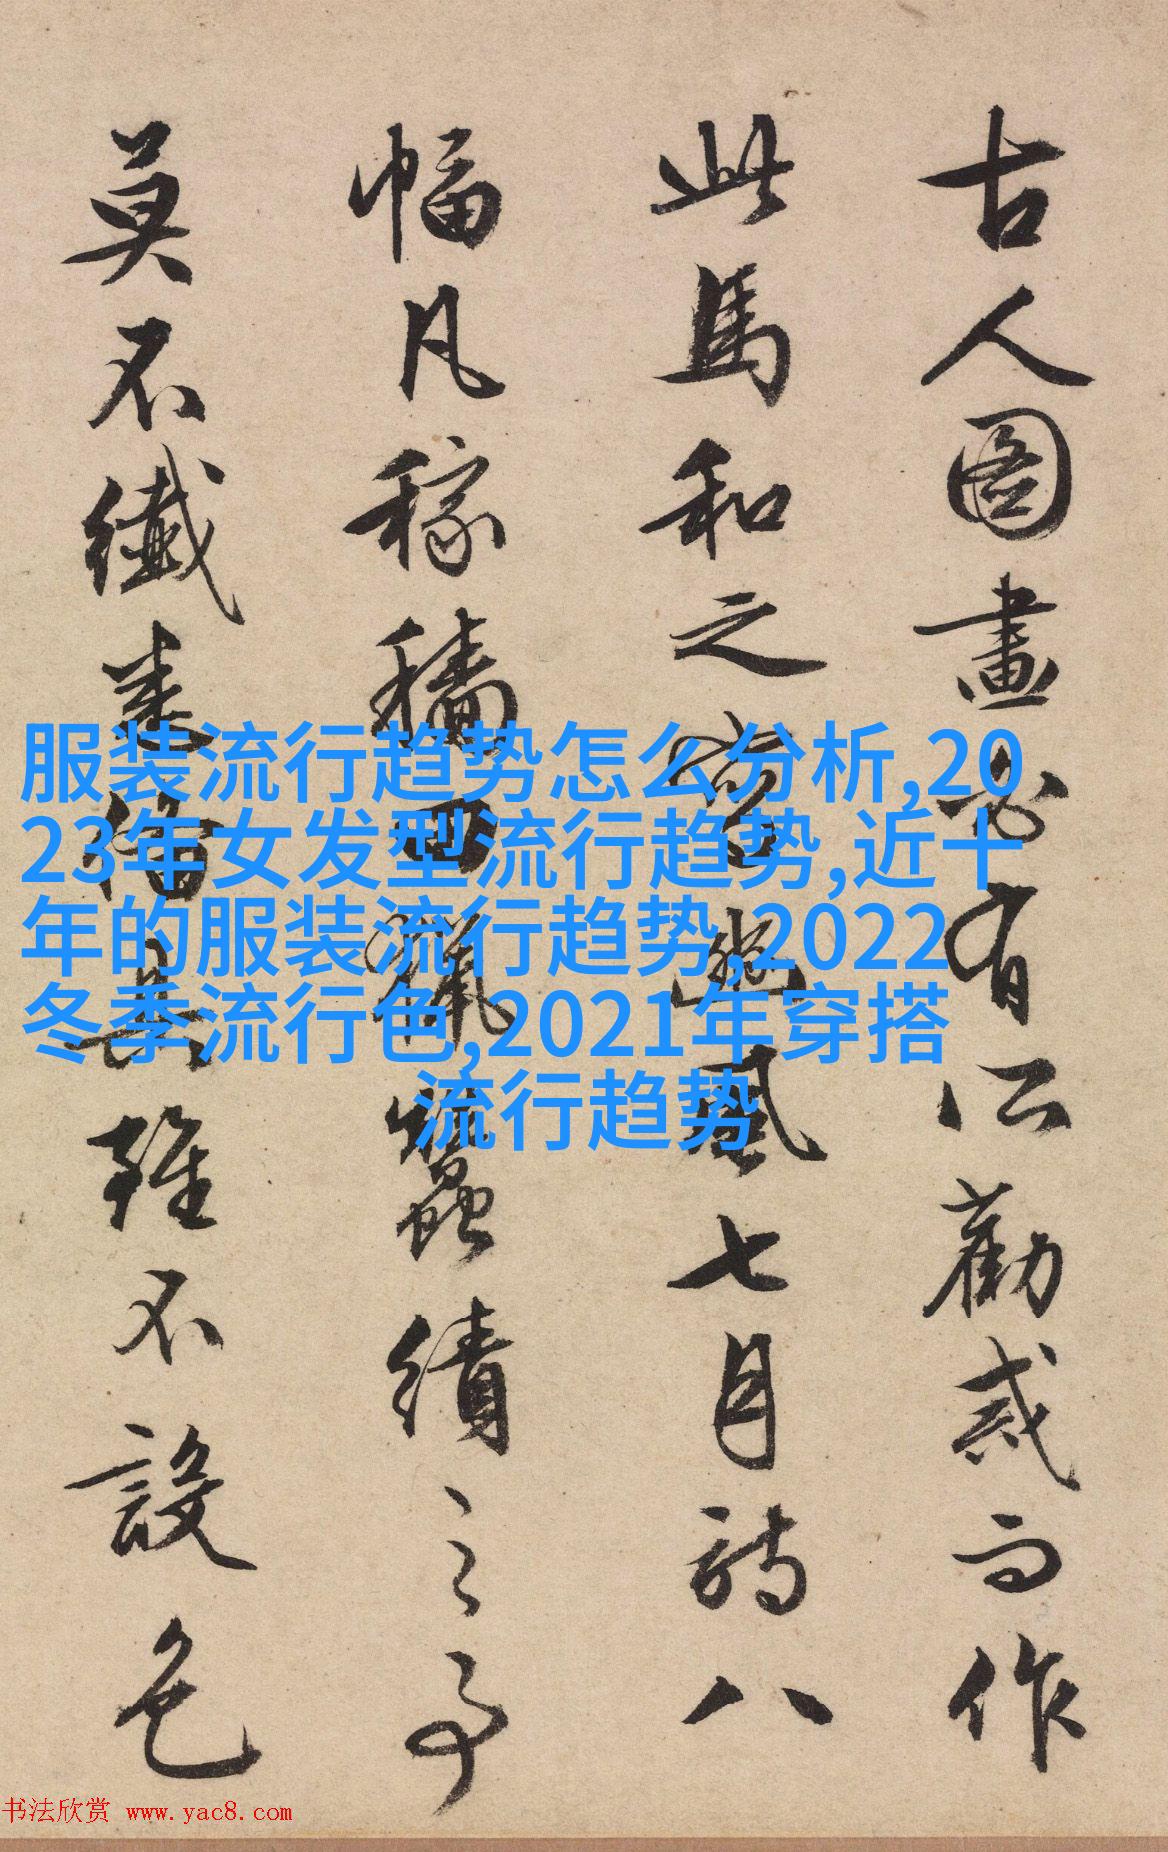 古人圖畫必有所勸戒而作
此馬和之寫豳風七月詩八
幅凡稼穡田獵蠶績之事
莫不纖悉備具雖不設色
服装流行趋势怎么分析,20
23年女发型流行趋势,近十
年的服装流行趋势,2022
冬季流行色,2021年穿搭
流行趋势
书法欣赏 www.yac8.com